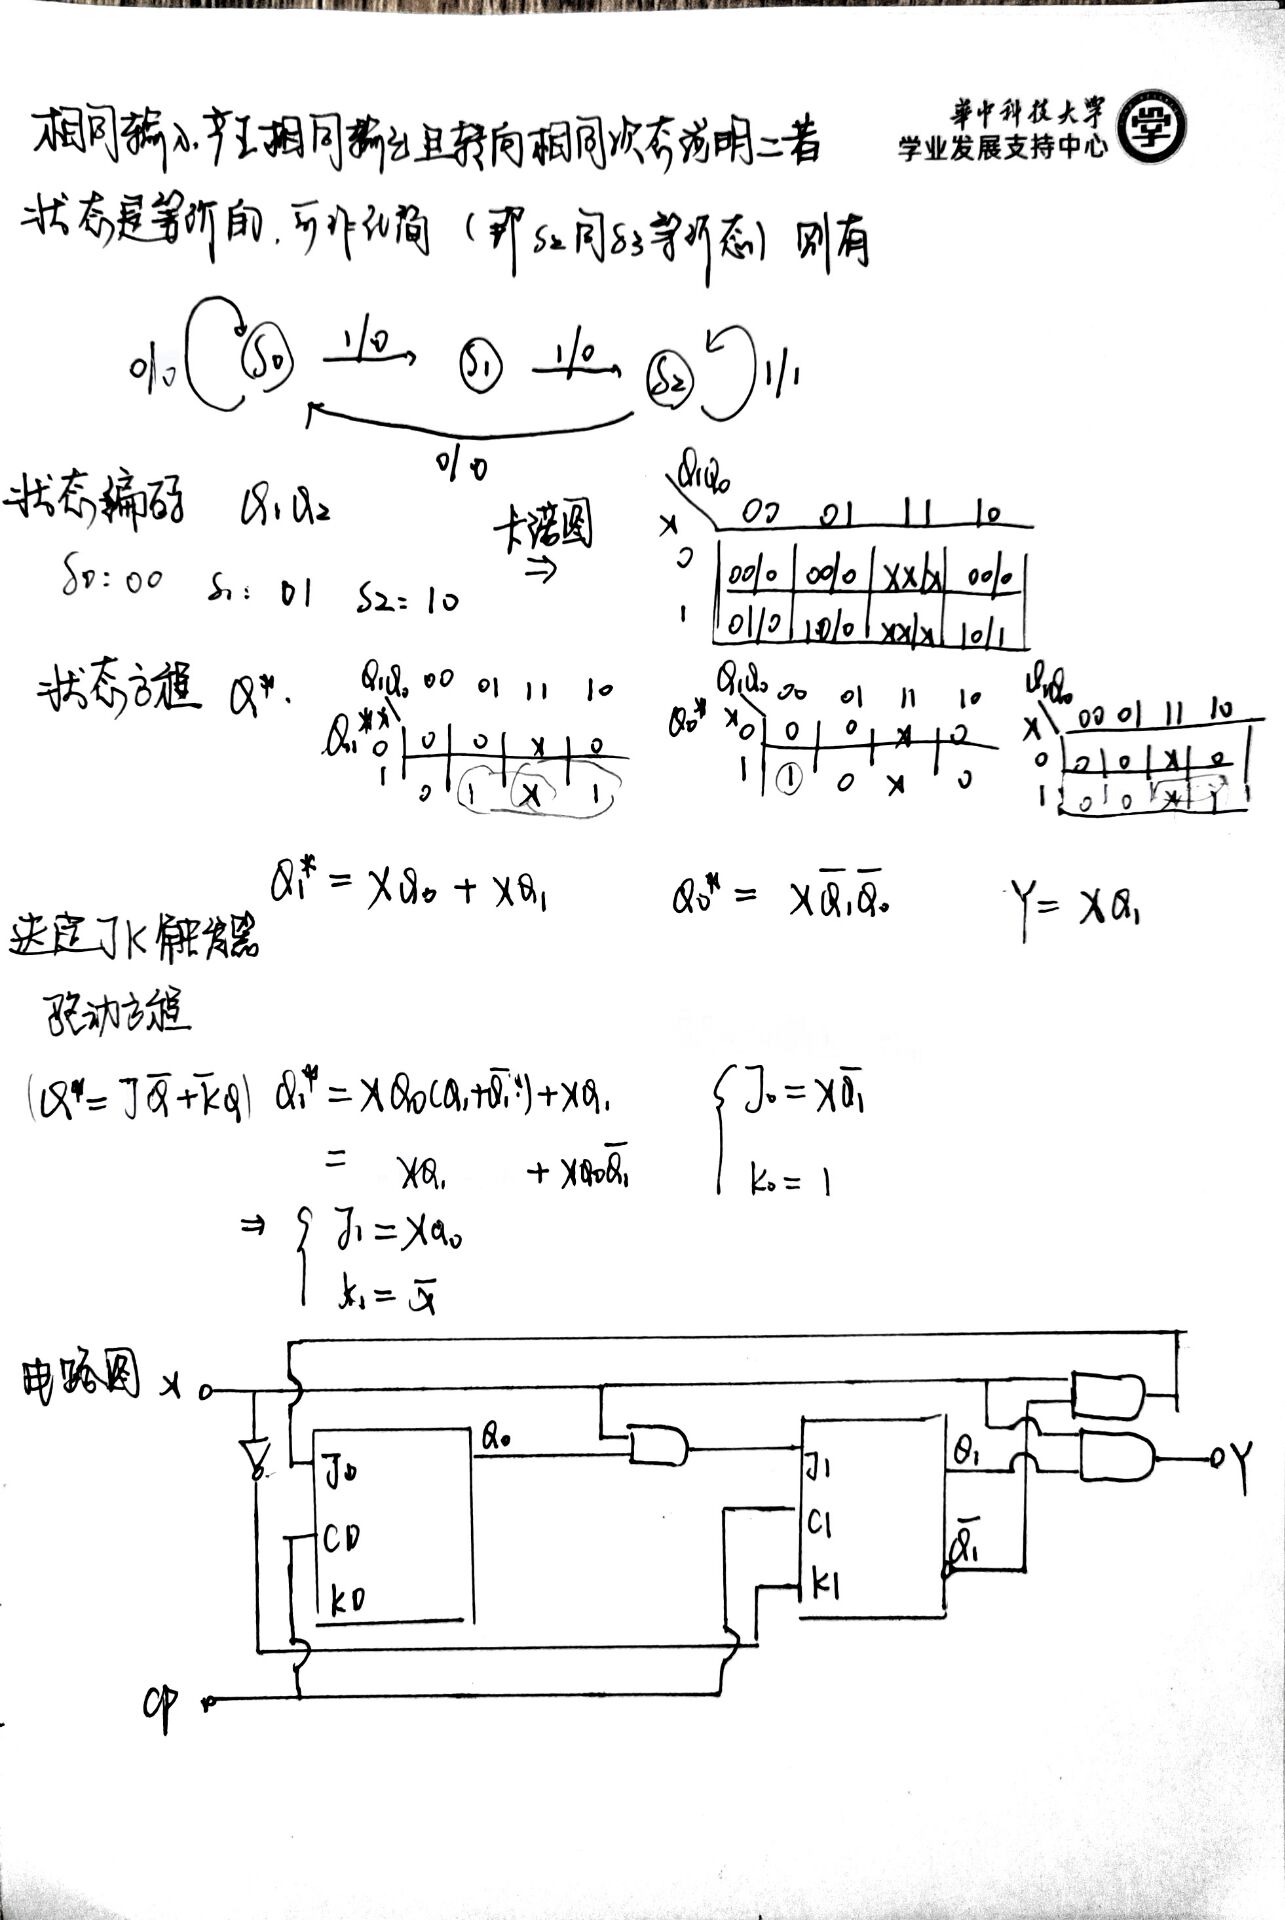 華中科技大学
学业发展支持中心
学
相同输入产生相同输出且转向相同次态说明二者
状态是等价的, 可化简 (即 S2 同 S3 等价态) 则有
0/0 S0 1/0 S1 1/0 S2 1/1
0/0
状态编码 Q1Q2
S0: 00 S1: 01 S2: 10
卡诺图 ⇒
Q1Q0
X 00 01 11 10
0 00/0 00/0 XX/X 00/0
1 01/0 10/0 XX/X 10/1
状态方程 Q*.
Q1* Q1Q0 00 01 11 10
X 0 0 0 X 0
1 0 1 X 1
Q0* Q1Q0 00 01 11 10
X 0 0 0 X 0
1 1 0 X 0
Q1Q0
X 00 01 11 10
0 0 0 X 0
1 0 0 X 1
Q1* = XQ0 + XQ1
Q0* = XQ̅1Q̅0
Y = XQ1
选定JK触发器
驱动方程
(Q* = JQ̅ + K̅Q) Q1* = XQ0(Q1+Q̅1) + XQ1
= XQ1 + XQ0Q̅1
{ J0 = XQ̅1
K0 = 1
⇒ { J1 = XQ0
K1 = X̅
电路图 X
J0 Q0
C0
K0
J1 Q1
C1
K1 Q̅1
Y
CP